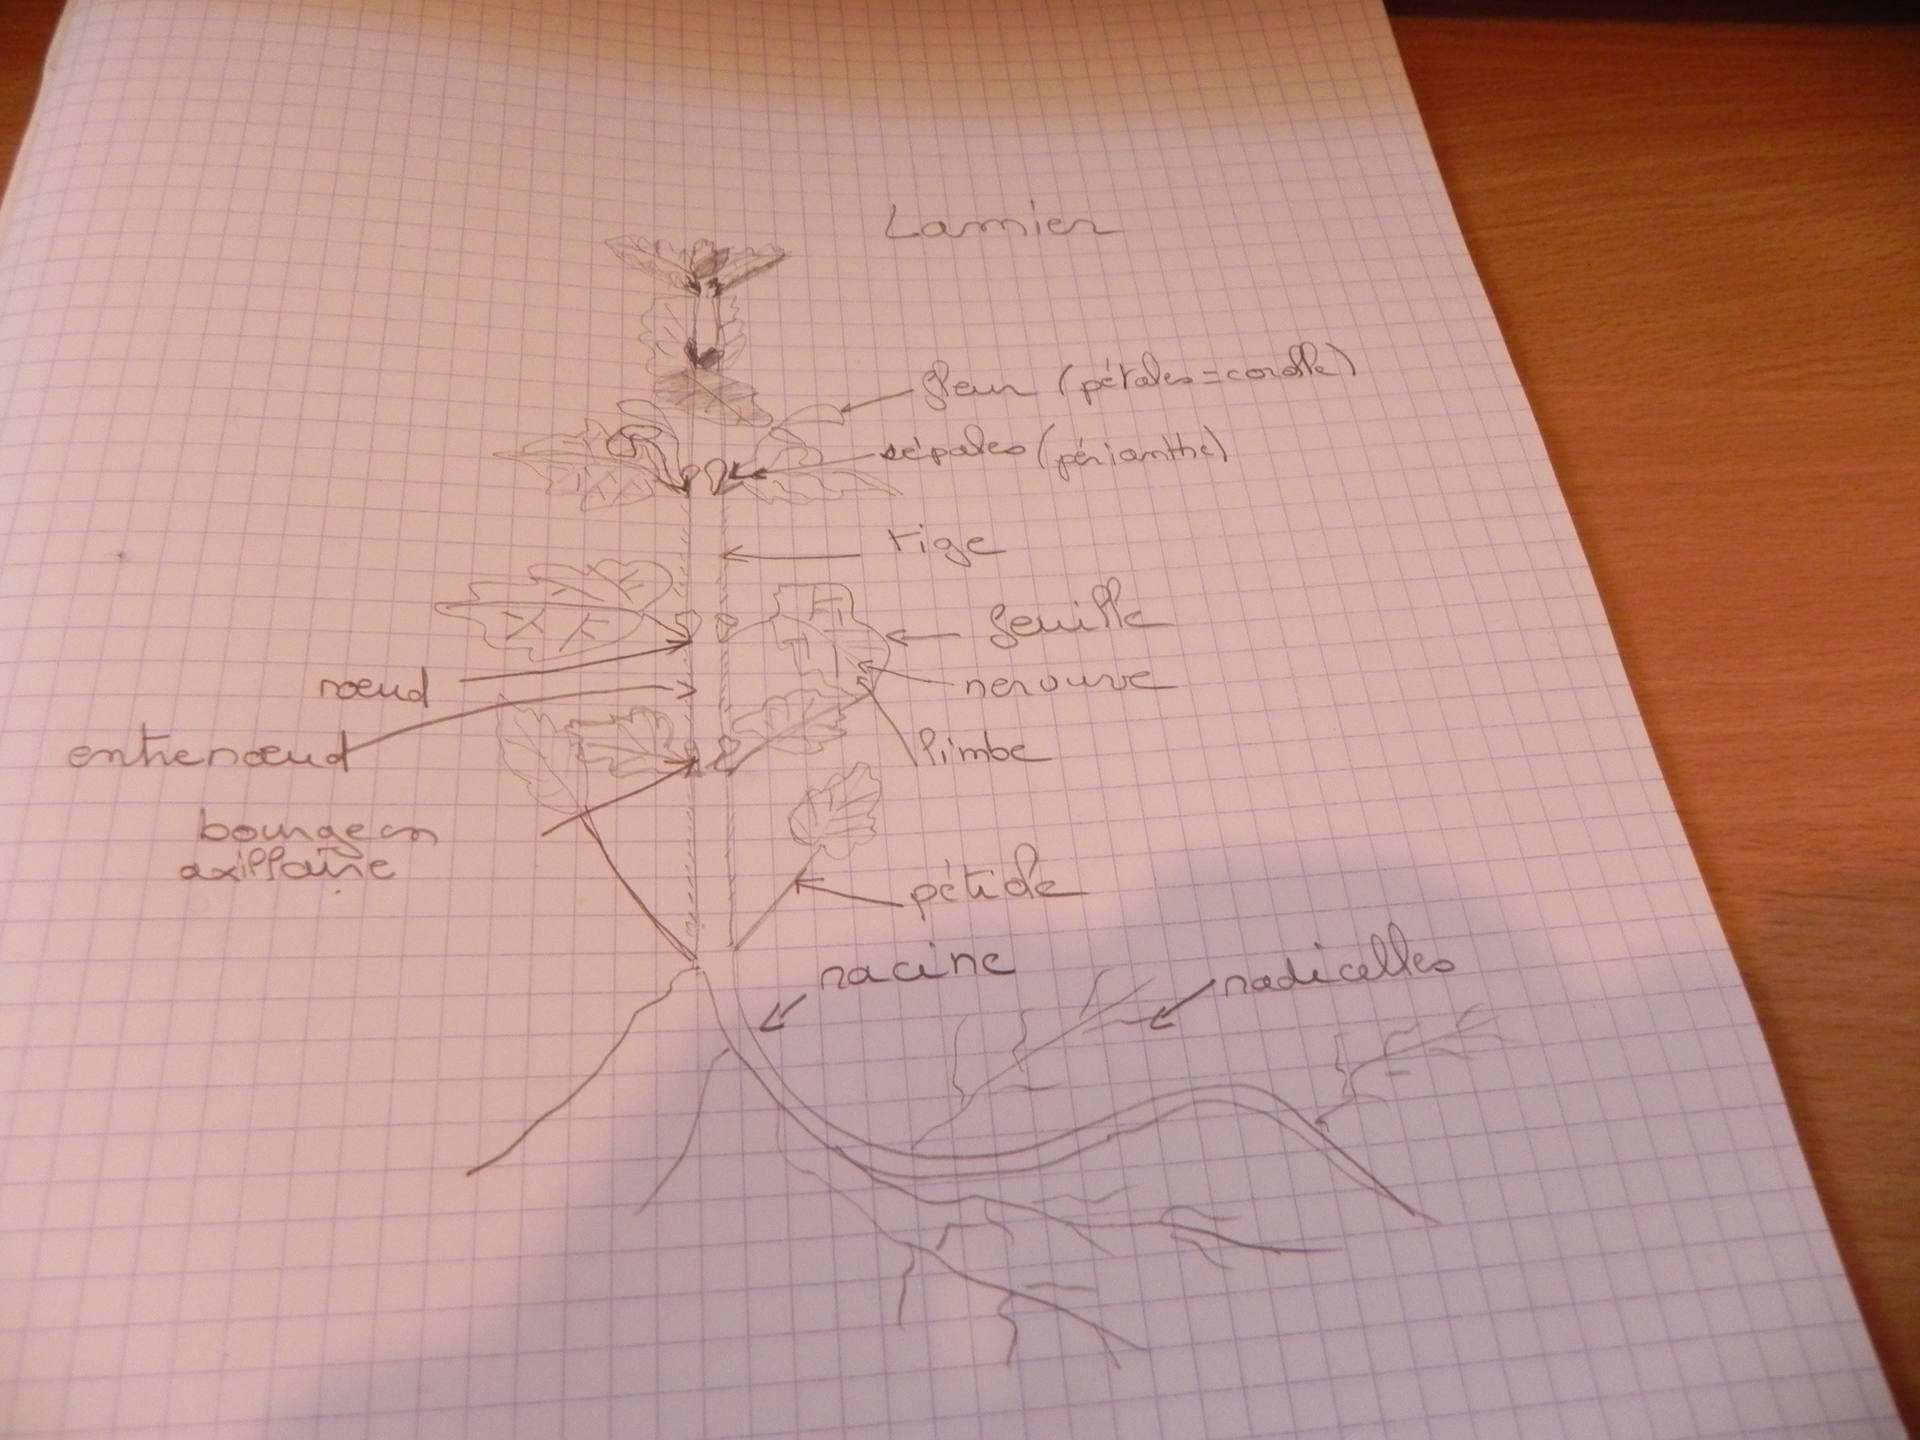 Lamier
fleur (pétales=corolle)
sépales (périanthe)
tige
feuille
nervure
limbe
noeud
entrenoeud
bourgeon
axillaire
pétiole
racine
radicelles